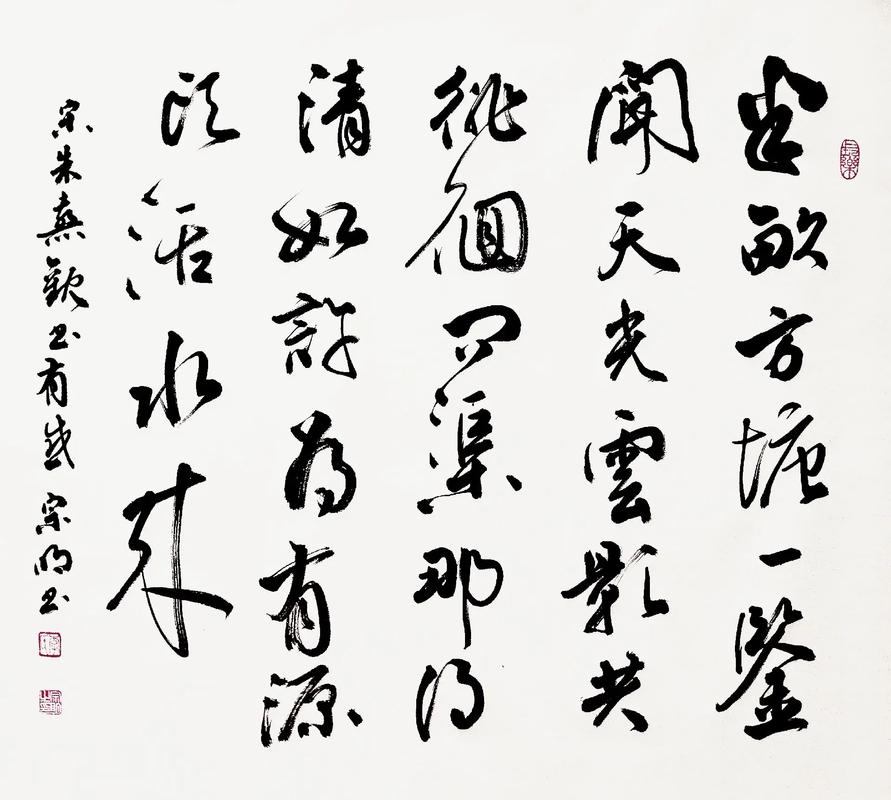 半畝方塘一鑒
開天光雲影共
徘徊問渠那得
清如許為有源
頭活水來
宋朱熹觀書有感 宗明書